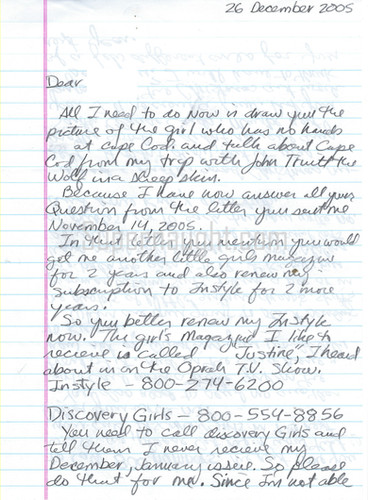 26 December 2005
Dear
All I need to do now is draw you the
picture of the girl who has no hands
at Cape Cod. and talk about Cape
Cod from my trip with John Truitt the
Wolf in a sheep skin.
Because I have now answer all your
Question from the letter you sent me
November 14, 2005.
In that letter you mention you would
get me another little girls magazine
for 2 years and also renew my
subscription to Instyle for 2 more
years.
So you better renew my Instyle
now. The girl's Magazine I like to
recieve is called Justine, I heard
about us on the Oprah T.V. Show.
Instyle - 800-274-6200
Discovery Girls - 800-554-8856
You need to call discovery Girls and
tell them I never recieve my
December, January issue. So please
do that for me. Since I'm not able